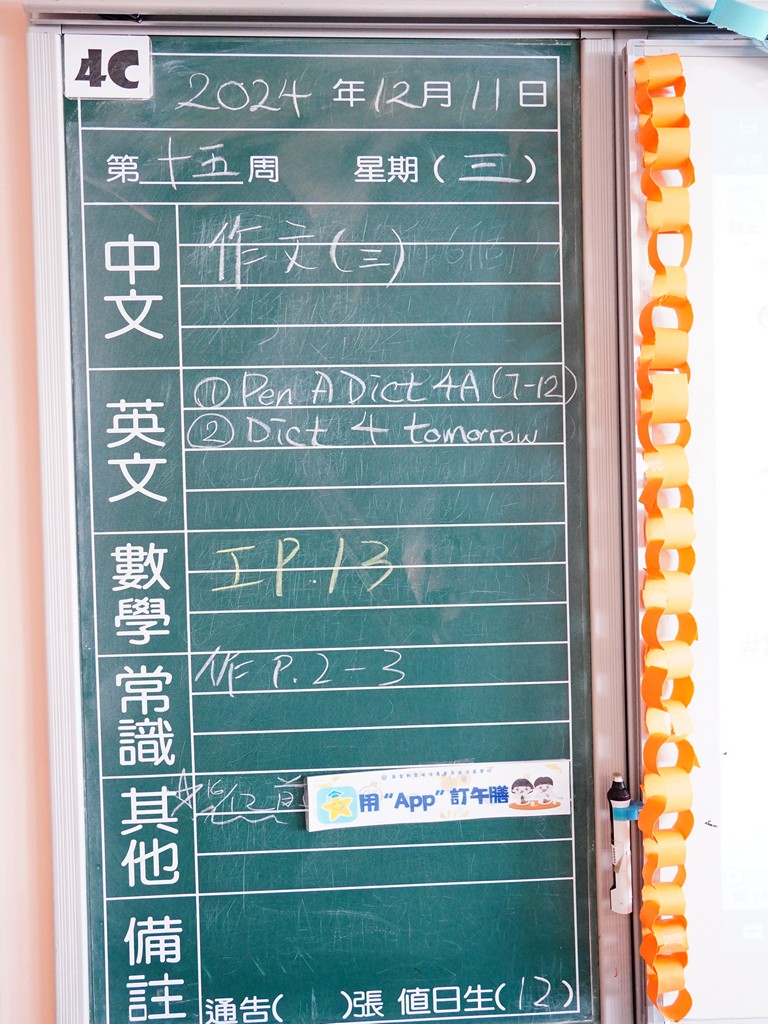 4C
2024 年 12月 11日
第十五周 星期(三)
中文
作文(三)
英文
① Pen A Dict 4A (7-12)
② Dict 4 tomorrow
數學
工P.13
常識
作 P.2-3
其他
用“App”訂午膳
備註
通告( )張 值日生(12)